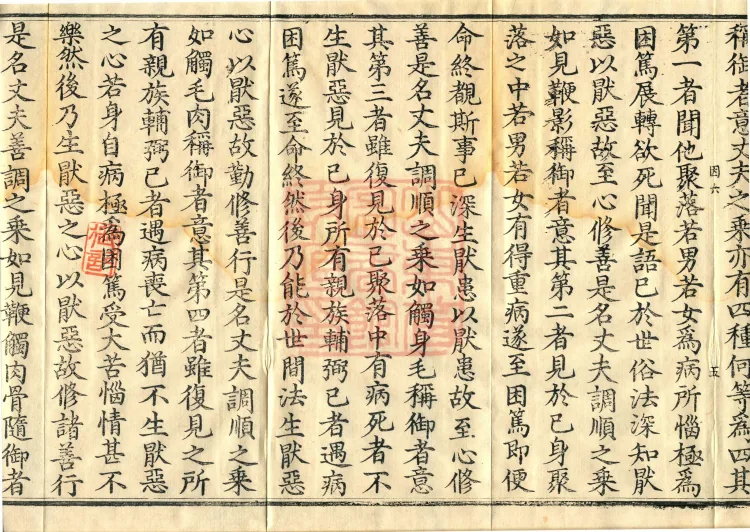 稱御者意丈夫之乘亦有四種何等爲四其
第一者聞他聚落若男若女爲病所惱極爲
因六
五
困篤展轉欲死聞是語已於世俗法深知猒
惡以猒惡故至心修善是名丈夫調順之乘
如見鞭影稱御者意其第二者見於己身聚
落之中若男若女有得重病遂至困篤即便
命終覩斯事已深生猒患以猒患故至心修
善是名丈夫調順之乘如觸身毛稱御者意
其第三者雖復見於己聚落中有病死者不
生猒惡見於己身所有親族輔弼己者遇病
困篤遂至命終然後乃能於世間法生猒惡
心以猒惡故勤修善行是名丈夫調順之乘
如觸毛肉稱御者意其第四者雖復見之所
有親族輔弼己者遇病喪亡而猶不生猒惡
之心若身自病極爲困篤受大苦惱情甚不
樂然後乃生猒惡之心以猒惡故修諸善行
是名丈夫善調之乘如見鞭觸肉骨隨御者